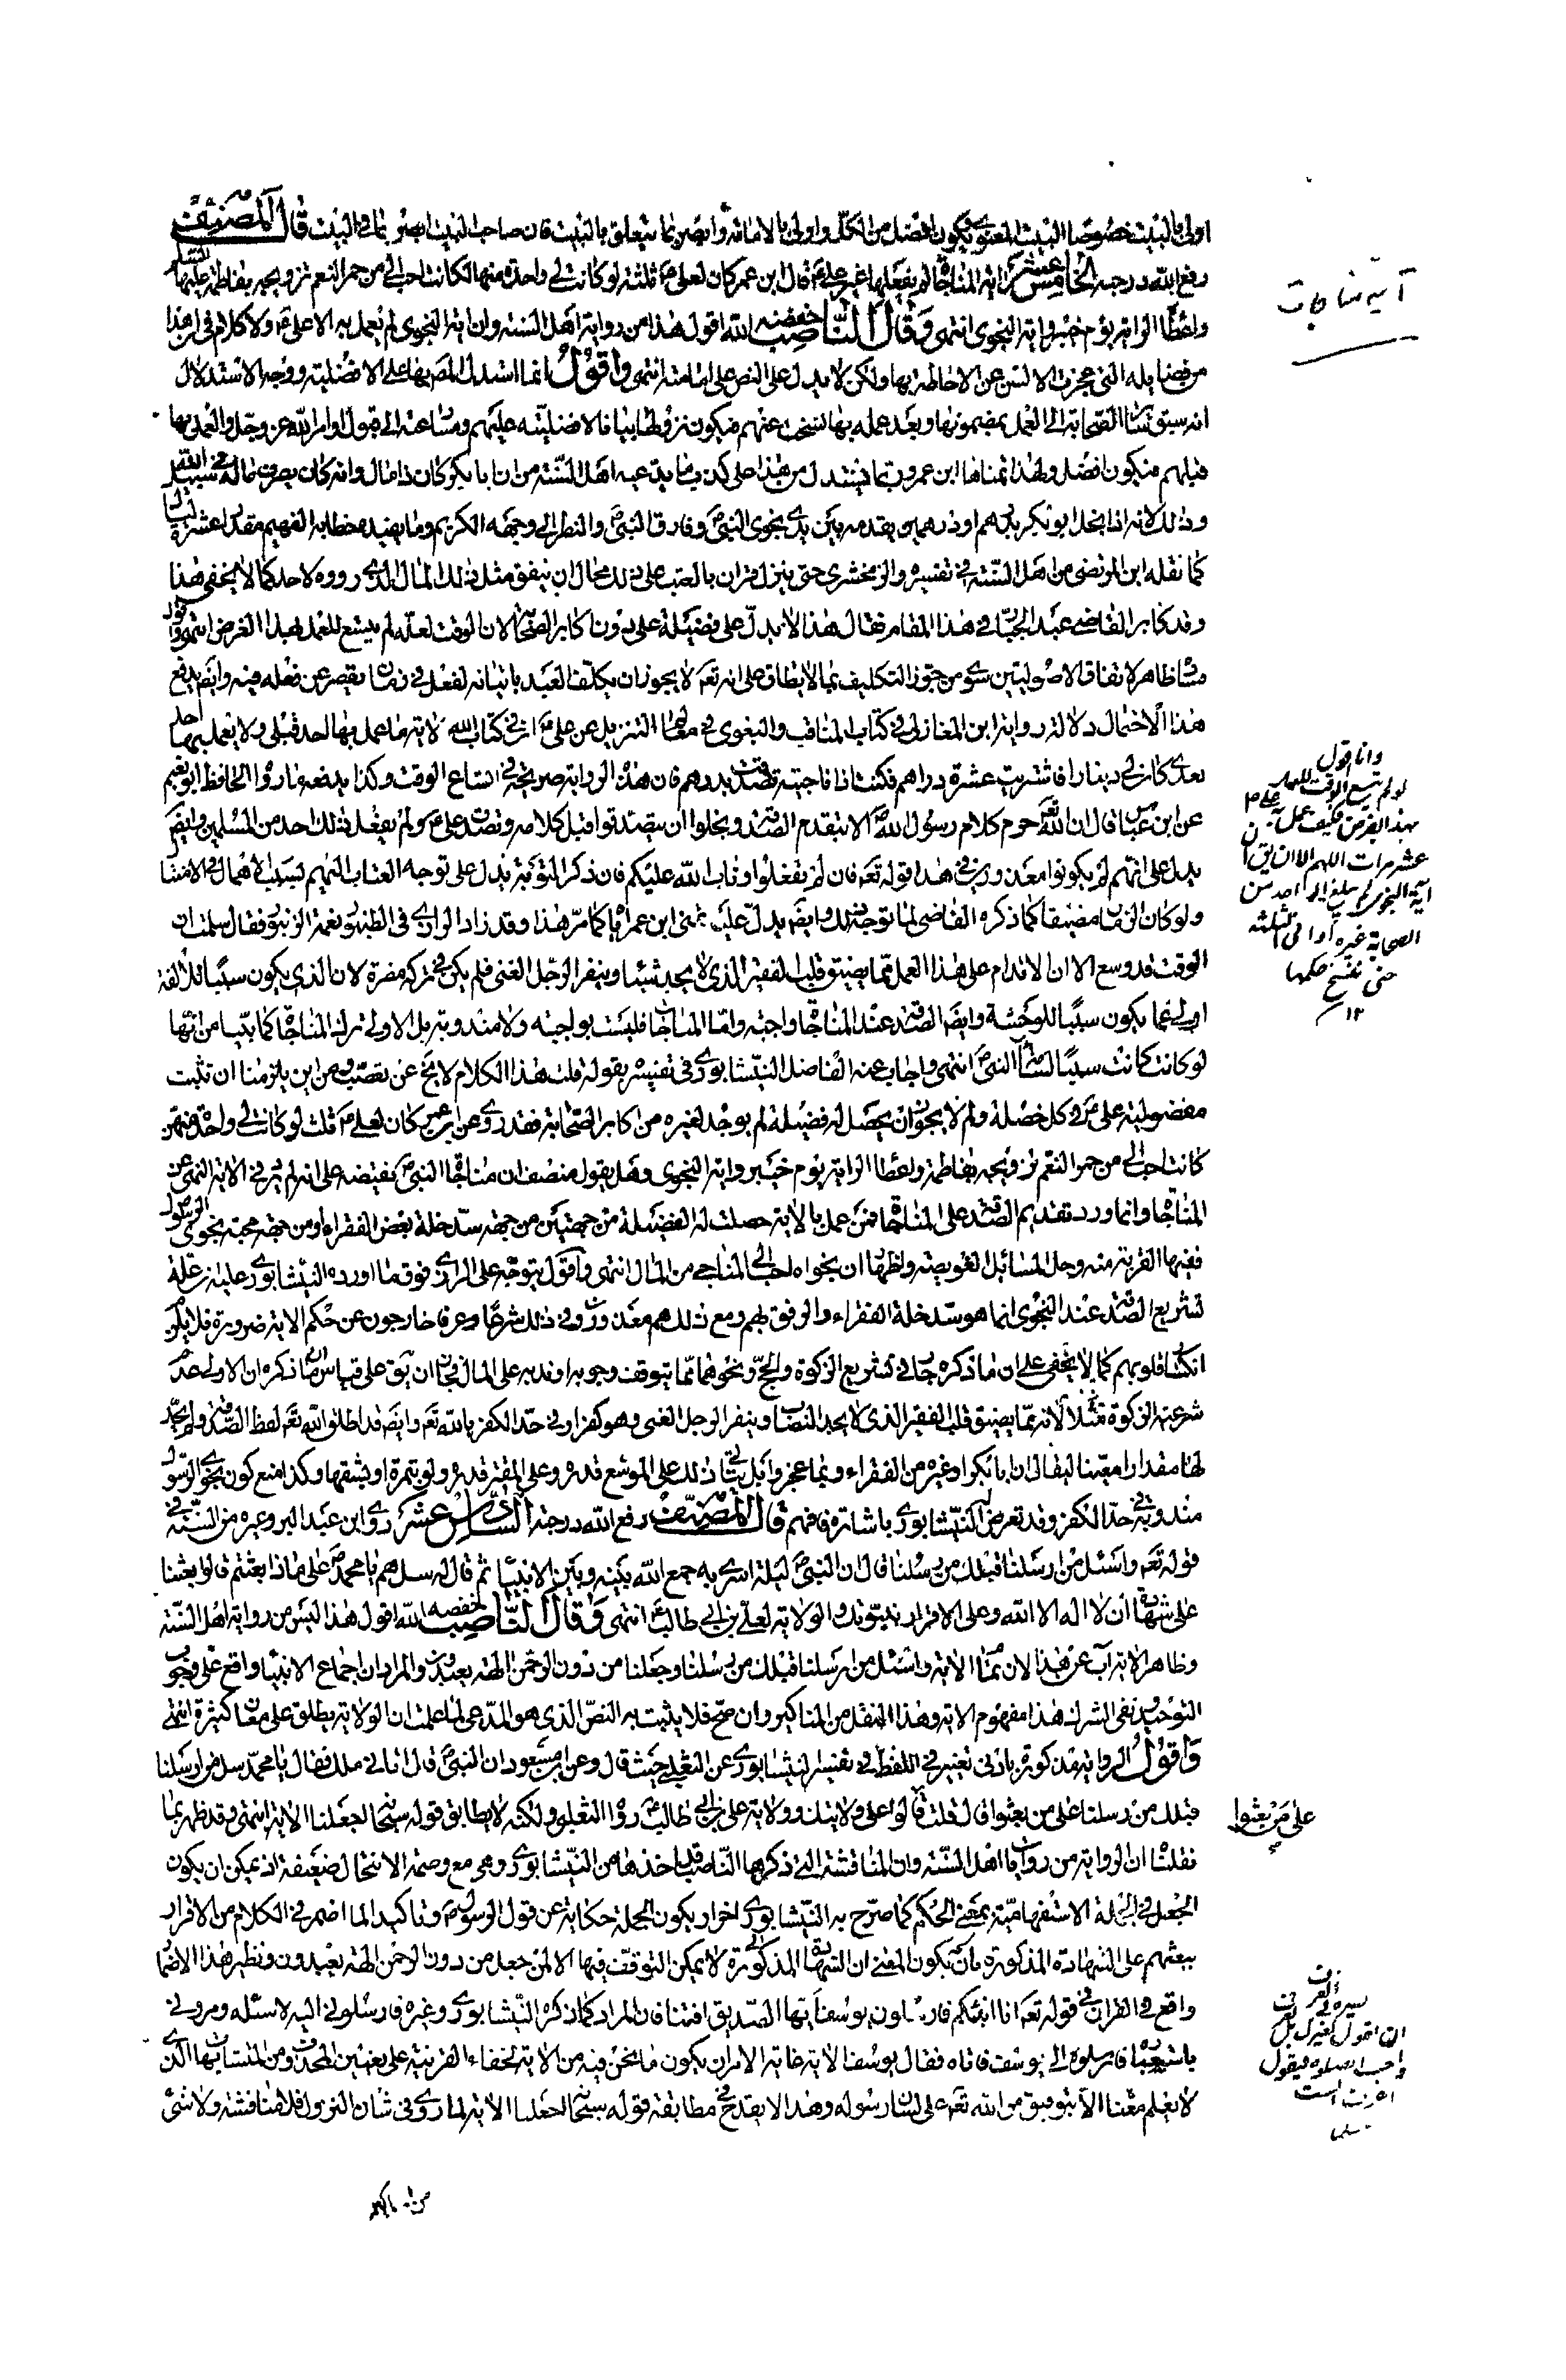 اولى بالبيت خصوصا البيت المعنوى فيكون افضل من الكل واولى بالامامة وابصر بما يتعلق بالبيت فان صاحب البيت ابصر بما فى البيت قال المصنف
رفع الله درجته الخامس عشر اية المناجاة لم يفعلها غير على ع قال ابن عمر كان لعلى ع ثلثة لو كانت لى واحدة منها لكانت احب الى من حمر النعم تزويجه بفاطمة عليها السلام
واعطاء الراية يوم خيبر واية النجوى انتهى وقال الناصب خفضه الله اقول هذا من رواية اهل السنة وان اية النجوى لم يعمل به الا على ع ولا كلام فى ان هذا
من فضايله التى عجزت الالسن عن الاحاطة بها ولكن لا يدل على النص على امامته انتهى واقول انما استدل المص بها على الافضلية ووجه الاستدلال
انه سبق ساير الصحابة الى العمل بمضمونها وبعد عمله بها نسخت عنهم فيكون نزولها بيانا لافضليته عليهم ومسارعته الى قبول اوامر الله عز وجل والعمل بها
قبلهم فيكون افضل ولهذا تمناها ابن عمر وربما يستدل من هذا على كذب ما يدعيه اهل السنة من ان ابا بكر كان ذا مال وانه كان يصرف ماله فى سبيل الله
وذلك لانه اذا بخل ابو بكر بدرهم او درهمين يقدمه بين يدى نجوى النبى ص وفارق النبى ص والنظر الى وجهه الكريم وما يفيده خطابه الفهيم مقدار عشر ليال
كما نقله ابن المرتضى من اهل السنة فى تفسيره والزمخشرى حتى ينزل قران بالعتب على ذلك محال ان ينفق مثل ذلك المال الذى رووه لاحد كما لا يخفى هذا
وقد كابر القاضى عبد الجبار فى هذا المقام فقال هذا لا يدل على فضيلة على ع دون اكابر الصحابة لان الوقت لعله لم يتسع للعمل بهذا الغرض انتهى واقول
هذا الاحتمال دلالة رواية ابن المغازلى فى كتاب المناقب والبغوى فى معالم التنزيل عن على ع ان فى كتاب الله لاية ما عمل بها احد قبلى ولا يعمل بها احد
بعدى كان لى دينار فاشتريت عشرة دراهم فكنت اذا ناجيته تصدقت بدرهم فان هذه الرواية صريحة فى اتساع الوقت وكذا يدفعه ما رواه الحافظ ابو نعيم
عن ابن عباس قال ان الله تعالى حرم كلام رسول الله ص الا بتقدم الصدقة وبخلوا ان يتصدقوا قبل كلامه وتصدق على ع ولم يفعل ذلك احد من المسلمين وايضا
يدل على انهم لم يكونوا معذورين فى هذا قوله تعه فان لم تفعلوا وتاب الله عليكم فان ذكر التوبة يدل على توجه العتاب اليهم بسبب اهمال فى الامتثال
ولو كان الزمان مضيقا كما ذكره القاضى لما توجه ذلك وايضا يدل عليه تمنى ابن عمر اياها كما مر هذا وقد زاد الرازى فى الطنبور نغمة اخرى فقال سلمنا ان
الوقت قد وسع الا ان الاقدام على هذا العمل مما يضيق قلب الفقير الذى لا يجد شيئا وينفر الرجل الغنى فلم يكن فى تركه مضرة لان الذى يكون سببا للالفة
اولى عما يكون سببا للوحشة وايضا الصدقة عند المناجاة واجبة واما المناجاة فليست بواجبة ولا مندوبة بل الاولى ترك المناجاة كما بينا من انها
لو كانت كانت سببا لسأمة النبى ص انتهى واجاب عنه الفاضل النيشابورى فى تفسيره بقوله قلت هذا الكلام لا يخ عن تعصب ومن اين يلزمنا ان نثبت
مفضولية على ع فى كل خصلة ولم لا يجوز ان يحصل له فضيلة لم يوجد لغيره من اكابر الصحابة فقد روى عن ابن عمر كان لعلى ع ثلث لو كانت لى واحدة منهن
كانت احب الى من حمر النعم تزويجه بفاطمة واعطاء الراية يوم خيبر واية النجوى وهل يقول منصف ان مناجاة النبى نقيضه على انه لم يرد فى الاية النهى عن
المناجاة وانما ورد تقديم الصدقة على المناجاة فمن عمل بالاية حصلت له الفضيلة من جهتين من جهة سد خلة بعض الفقراء ومن جهة محبة نجوى الرسول
ففيها القربة منه وحل المسائل العويصة واظهار ان نجواه احب الى المناجى من المال انتهى واقول يتوجه على الرازى فوق ما اورده النيشابورى عليه ان علة
تشريع الصدقة عند النجوى انما هو سد خلة الفقراء والرفق بهم ومع ذلك هم معذورون فى ذلك شرعا وعرفا خارجون عن حكم الاية ضرورة فلا يكون
انكسار قلوبهم كما لا يخفى على ان ما ذكره جار فى تشريع الزكوة والحج ونحوهما مما يتوقف وجوبه او ندبه على المال فجاز ان يق على قياس ما ذكره ان الاولى عدم
شرعية الزكوة مثلا لانه مما يضيق قلب الفقير الذى لا يجد النصاب وينفر الرجل الغنى وهو كفر او فى حد الكفر بالله تعه وايضا قد اطلق الله تعه لفظ الصدقة ولم يحد
لها مقدارا معينا ليقال ان ابا بكر او غيره من الفقراء ربما عجز وا بل يتاتى ذلك على الموسع قدره وعلى المقتر قدره ولو بتمرة او بشقها وكذا منع كون نجوى الرسول
مندوبة فى حد الكفر وقد تعرض له النيشابورى باشارة فافهم قال المصنف رفع الله درجته السادس عشر روى ابن عبد البر وغيره من السنة فى
قوله تعه واسئل من ارسلنا قبلك من رسلنا قال ان النبى ص ليلة اسرى به جمع الله بينه وبين الانبياء ثم قال له سلهم يا محمد على ماذا بعثتم قالوا بعثنا
على شهادة ان لا اله الا الله وعلى الاقرار بنبوتك والولاية لعلى بن ابى طالب ع انتهى وقال الناصب خفضه الله اقول هذا ليس من رواية اهل السنة
وظاهر الاية آب عن هذا لان تمام الاية واسئل من ارسلنا قبلك من رسلنا وجعلنا من دون الرحمن الهة يعبدون والمراد ان اجماع الانبياء واقع على وجوب
التوحيد ونفى الشرك هذا مفهوم الاية وهذا النقل من المناكير وان صح فلا يثبت به النص الذى هو المدعى لما علمت ان الولاية يطلق على معان كثيرة انتهى
واقول الرواية مذكورة بادنى تغيير فى اللفظ فى تفسير النيشابورى عن الثعلبى حيث قال وعن ابن مسعود ان النبى ص قال اتانى ملك فقال يا محمد سل من ارسلنا
قبلك من رسلنا على من بعثوا قال قلت قالوا على ولايتك وولاية على بن ابى طالب ع رواه الثعلبى ولكنه لا يطابق قوله سبحانه اجعلنا الاية انتهى وقد ظهر بما
نقلناه ان الرواية من روايات اهل السنة وان المناقشة التى ذكرها الناصب قد اخذها من النيشابورى وهى مع وصمة الانتحال ضعيفة اذ يمكن ان يكون
الجعل فى الجملة الاستفهامية بمعنى الحكم كما صرح به النيشابورى اخرا ويكون الجملة حكاية عن قول الرسول ص وتاكيدا لما اضمر فى الكلام من الاقرار
ببعثهم على الشهادة المذكورة بان يكون المعنى ان الشهادة المذكورة لا يمكن التوقف فيها الا لمن جعل من دون الرحمن الهة يعبدون ونظير هذا الاضمار
واقع فى القران فى قوله تعه انا انبئكم فارسلون يوسف ايها الصديق افتنا فان المراد كما ذكره النيشابورى وغيره فارسلونى اليه لاسئله ومرونى
باستعباره فارسلوه الى يوسف فاتاه فقال يوسف الاية غاية الامر ان يكون ما نحن فيه من الاية لخفاء القرينة على تعيين المحذوف ومن المتشابهات التى
لا يعلم معناه الا بتوفيق من الله تعه على لسان رسوله وهذا لا يقدح فى مطابقة قوله سبحانه اجعلنا الاية لما روى فى شان النزول فلا مناقشة ولا شئ
آية مناجات
وانا اقول
لو لم يتسع الوقت للعمل
بهذا الفرض فكيف عمل به على ع
عشر مرات اللهم الا ان يق ان
آية النجوى لم يبلغ الى احد من
الصحابة غيره او الى الثلثة
حتى نسخ حكمها
١٢
على من بعثوا